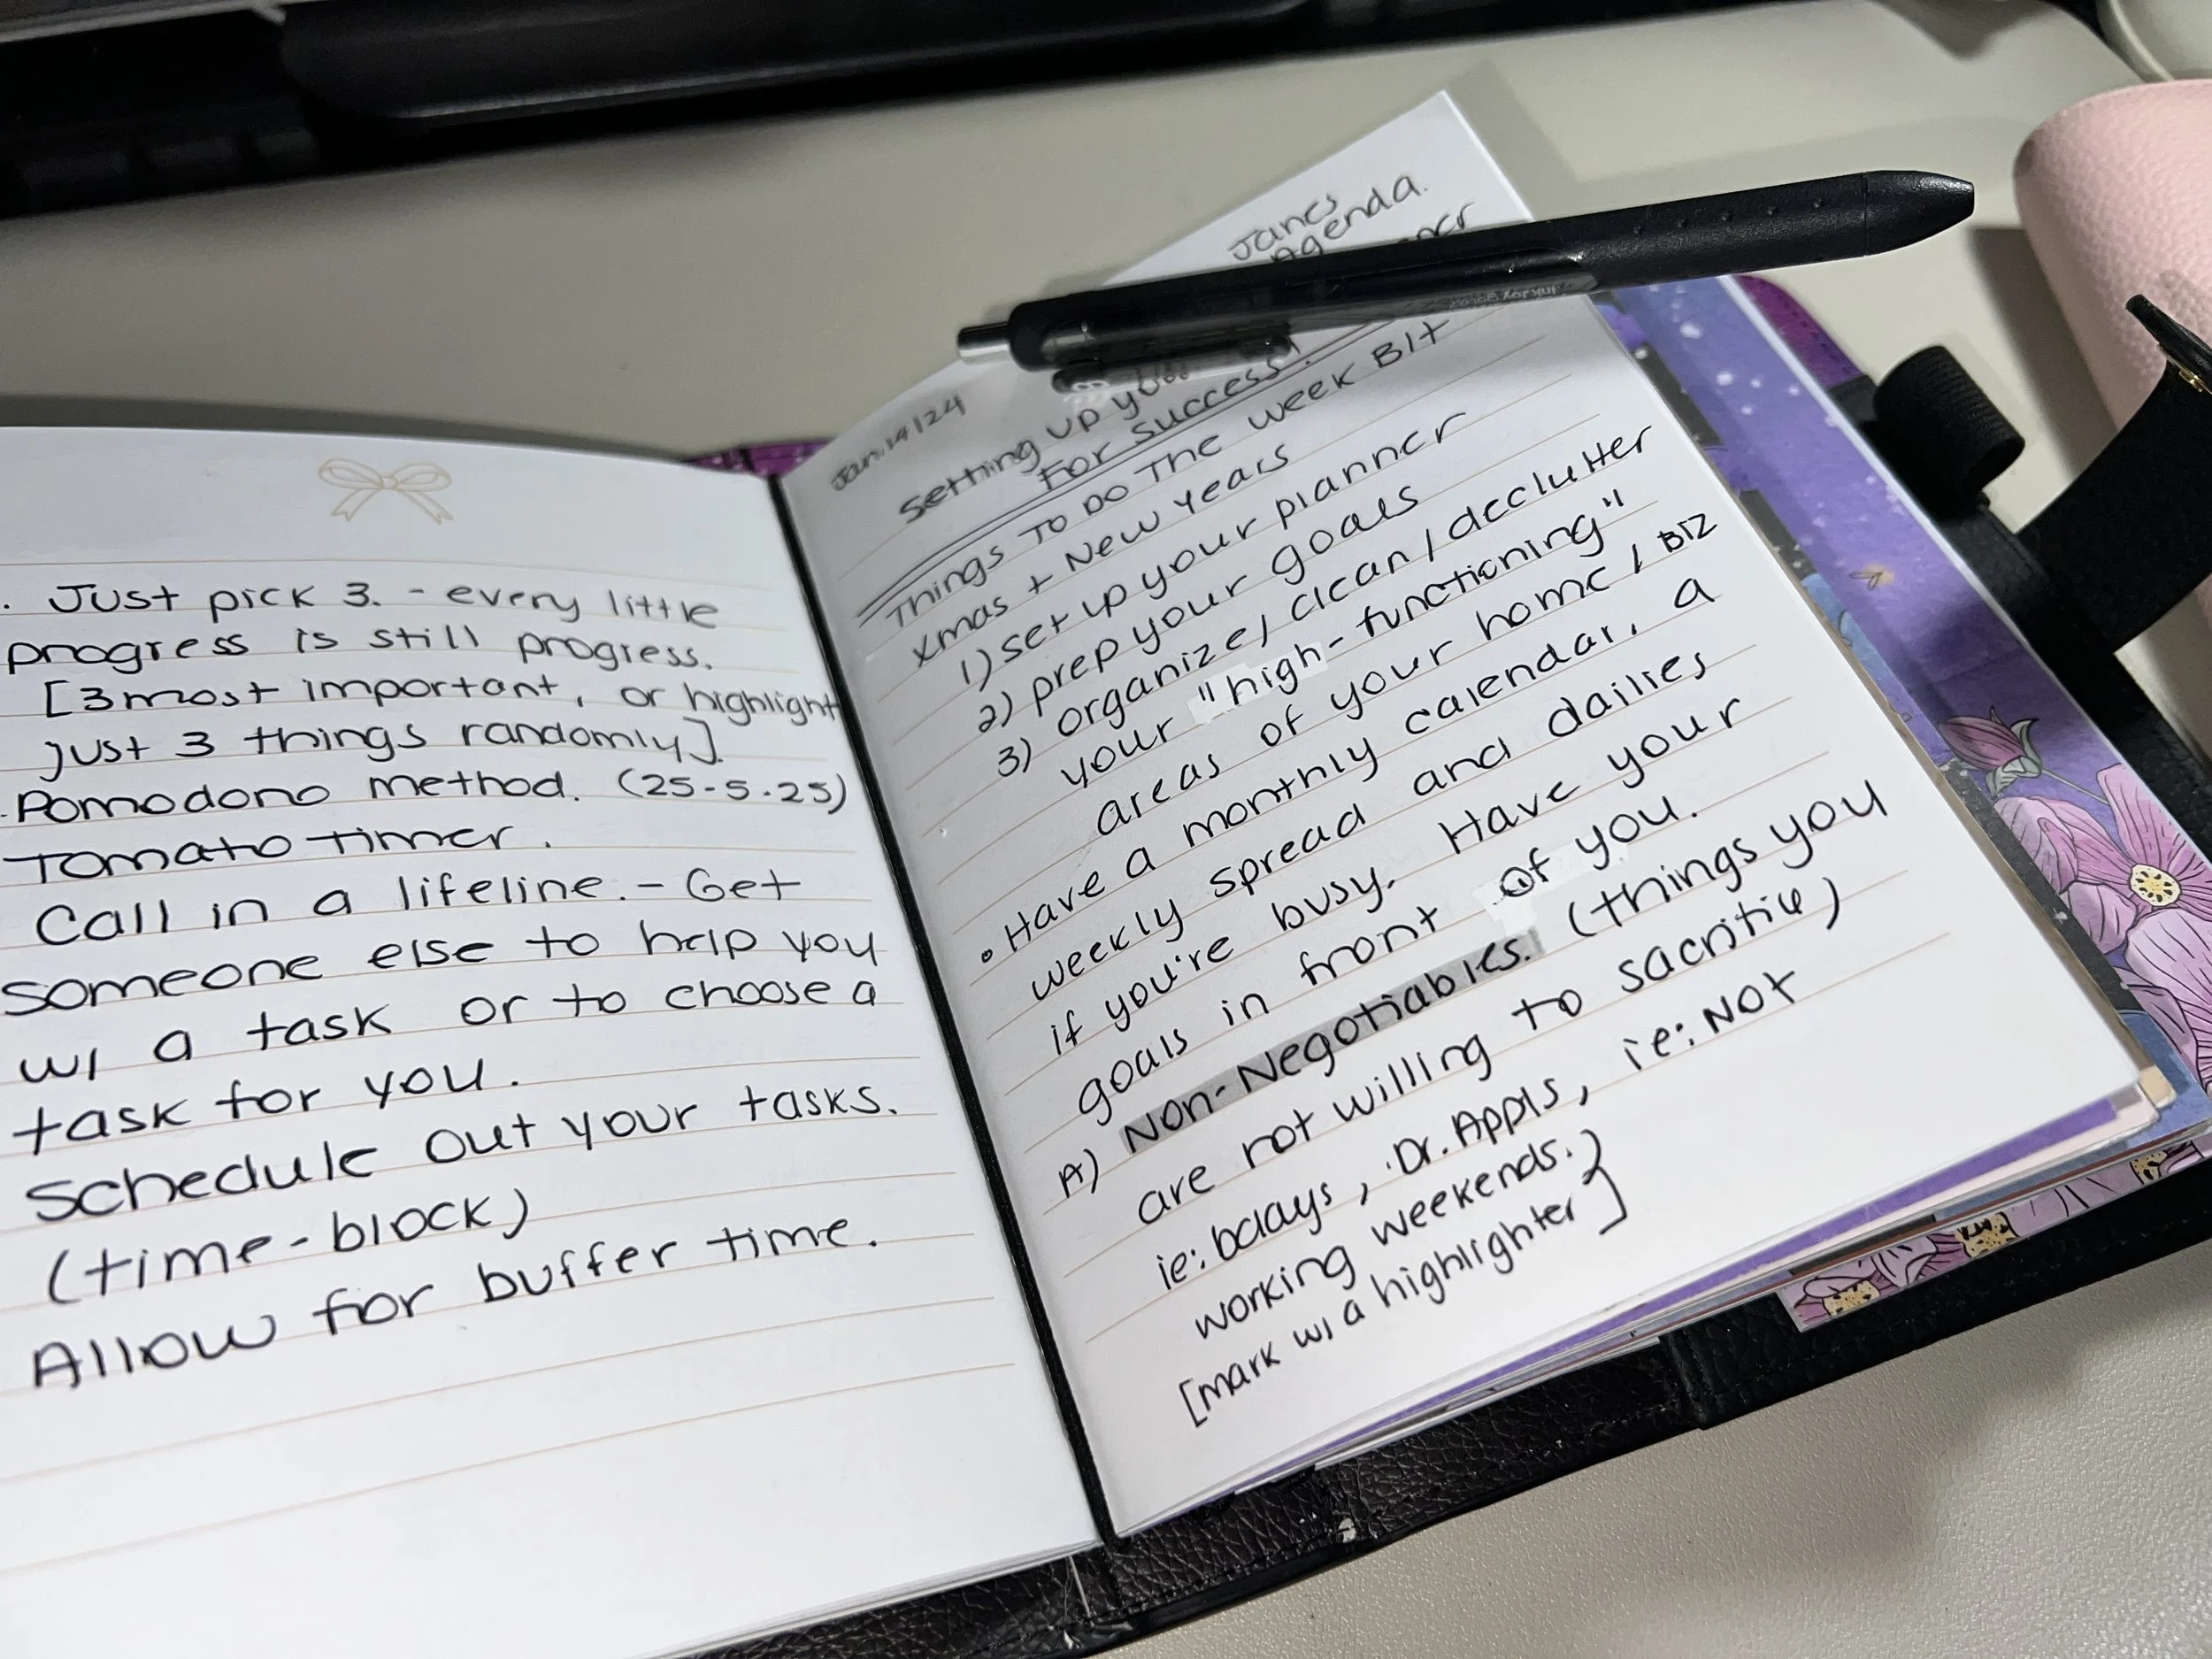 . Just pick 3. - every little
progress is still progress.
[3 most important, or highlight
just 3 things randomly].
. Pomodono method. (25-5.25)
Tomato timer.
Call in a lifeline. - Get
someone else to help you
w/ a task or to choose a
task for you.
Schedule out your tasks.
(time-block)
Allow for buffer time.
Janes
Agenda.
Jan.14/24
Setting up
For Success!
Things To Do The week BIT
xmas + New Years
1) set up your planner
2) prep your goals
3) organize/clean/declutter
your "high-functioning"
areas of your home/BIZ
• Have a monthly calendar, a
weekly spread and dailies
if you're busy. Have your
goals in front of you.
A) Non-Negotiables. (things you
are not willing to sacrifice)
ie: bdays, Dr. Appts, ie: NOT
working weekends.)
[mark w/ a highlighter]
InkJoy